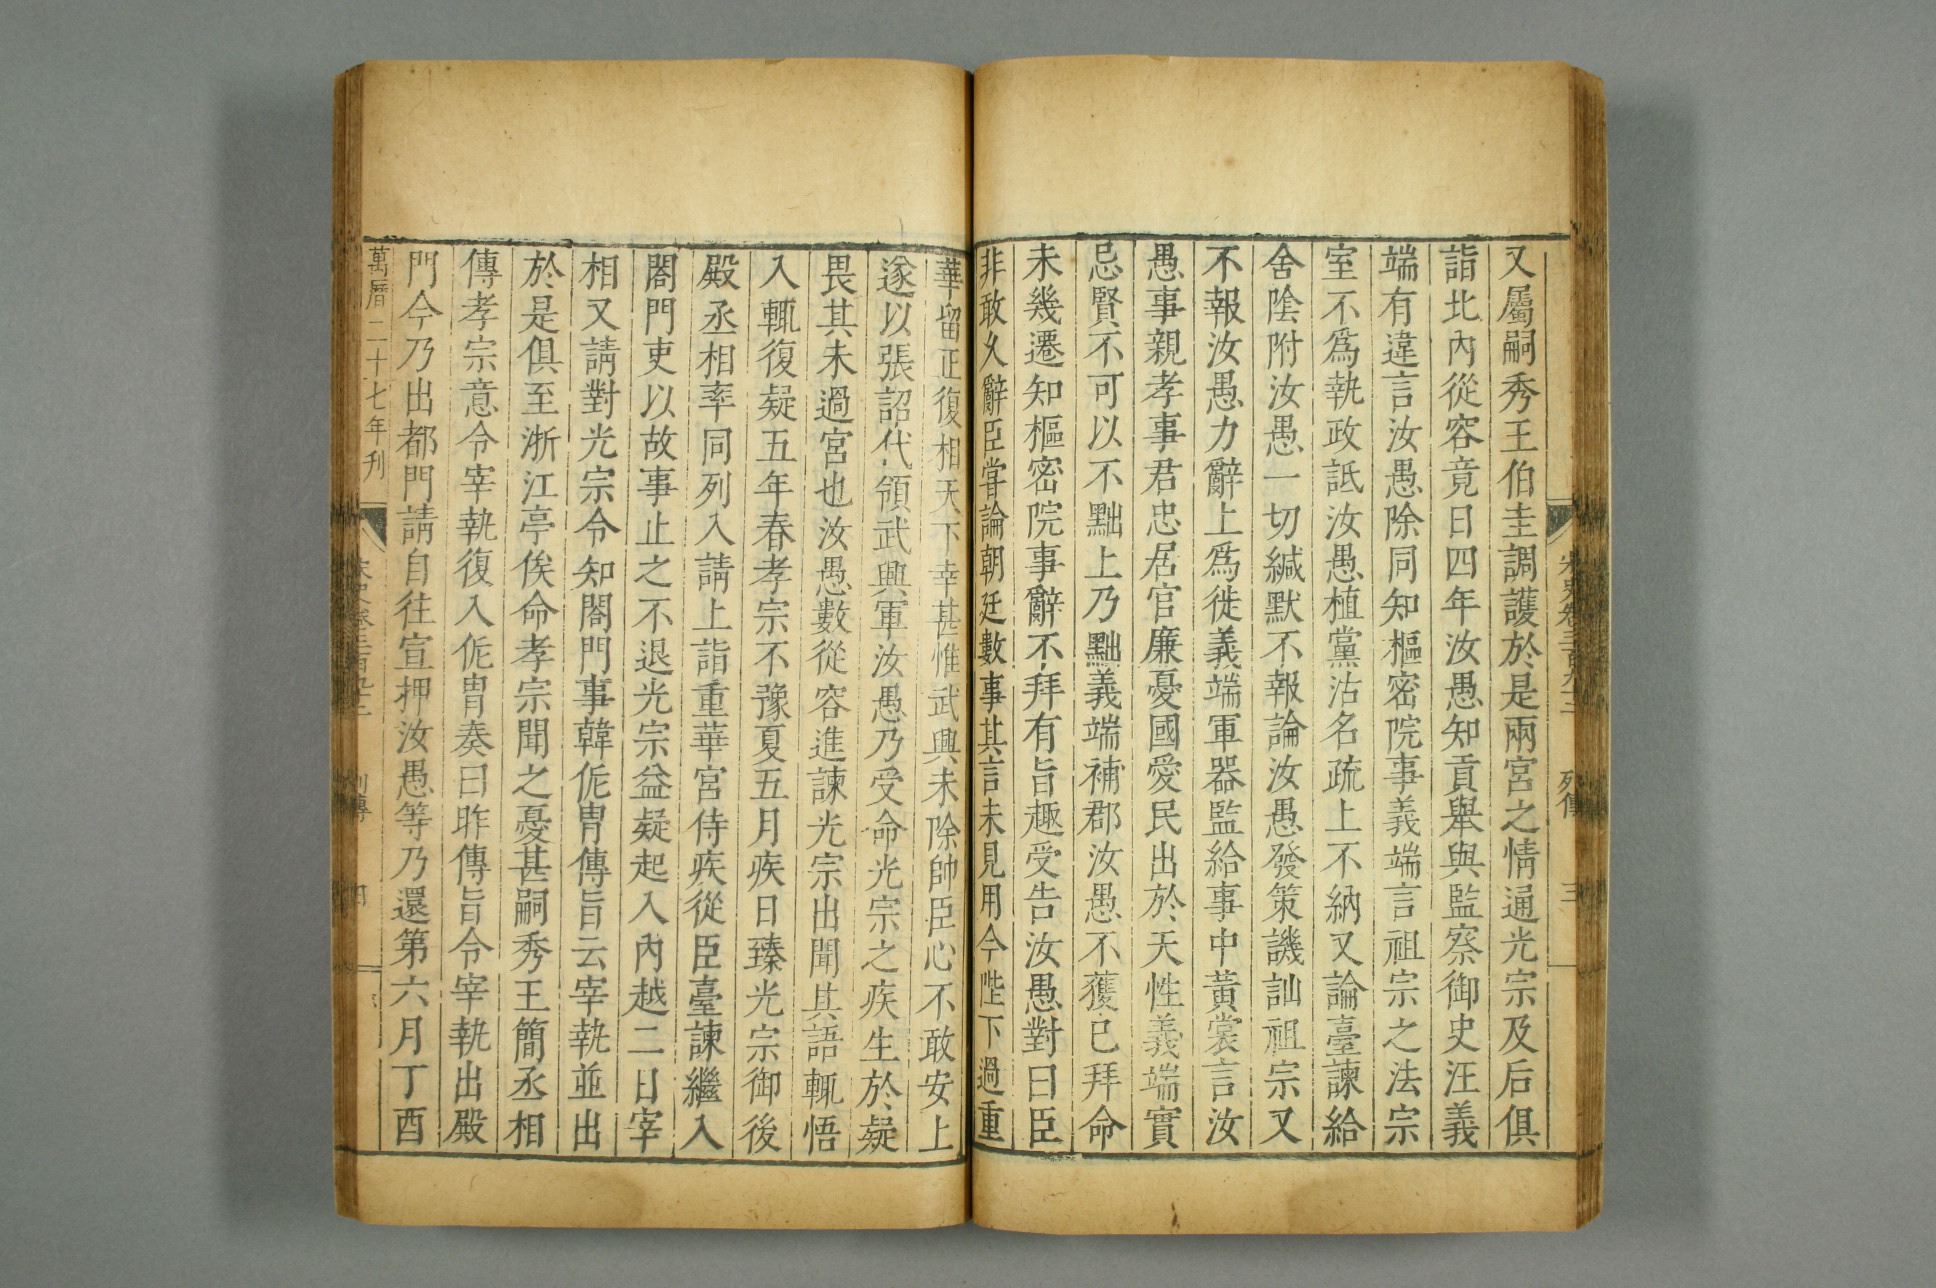 宋史卷三百九十二 列傳 三
又屬嗣秀王伯圭調護於是兩宮之情通光宗及后俱
詣北內從容竟日四年汝愚知貢舉與監察御史汪義
端有違言汝愚除同知樞密院事義端言祖宗之法宗
室不爲執政詆汝愚植黨沽名疏上不納又論臺諫給
舍陰附汝愚一切緘默不報論汝愚發策譏訕祖宗又
不報汝愚力辭上爲徙義端軍器監給事中黃裳言汝
愚事親孝事君忠居官廉憂國愛民出於天性義端實
忌賢不可以不黜上乃黜義端補郡汝愚不獲已拜命
未幾遷知樞密院事辭不拜有旨趣受告汝愚對曰臣
非敢久辭臣嘗論朝廷數事其言未見用今陛下過重
華留正復相天下幸甚惟武興未除帥臣心不敢安上
遂以張詔代領武興軍汝愚乃受命光宗之疾生於疑
畏其未過宮也汝愚數從容進諫光宗出聞其語輒悟
入輒復疑五年春孝宗不豫夏五月疾日臻光宗御後
殿丞相率同列入請上詣重華宮侍疾從臣臺諫繼入
閤門吏以故事止之不退光宗益疑起入內越二日宰
相又請對光宗令知閤門事韓侂冑傳旨云宰執並出
於是俱至浙江亭俟命孝宗聞之憂甚嗣秀王簡丞相
傳孝宗意令宰執復入侂冑奏曰昨傳旨令宰執出殿
門今乃出都門請自往宣押汝愚等乃還第六月丁酉
萬曆二十七年刊 宋史卷三百九十二 列傳 四